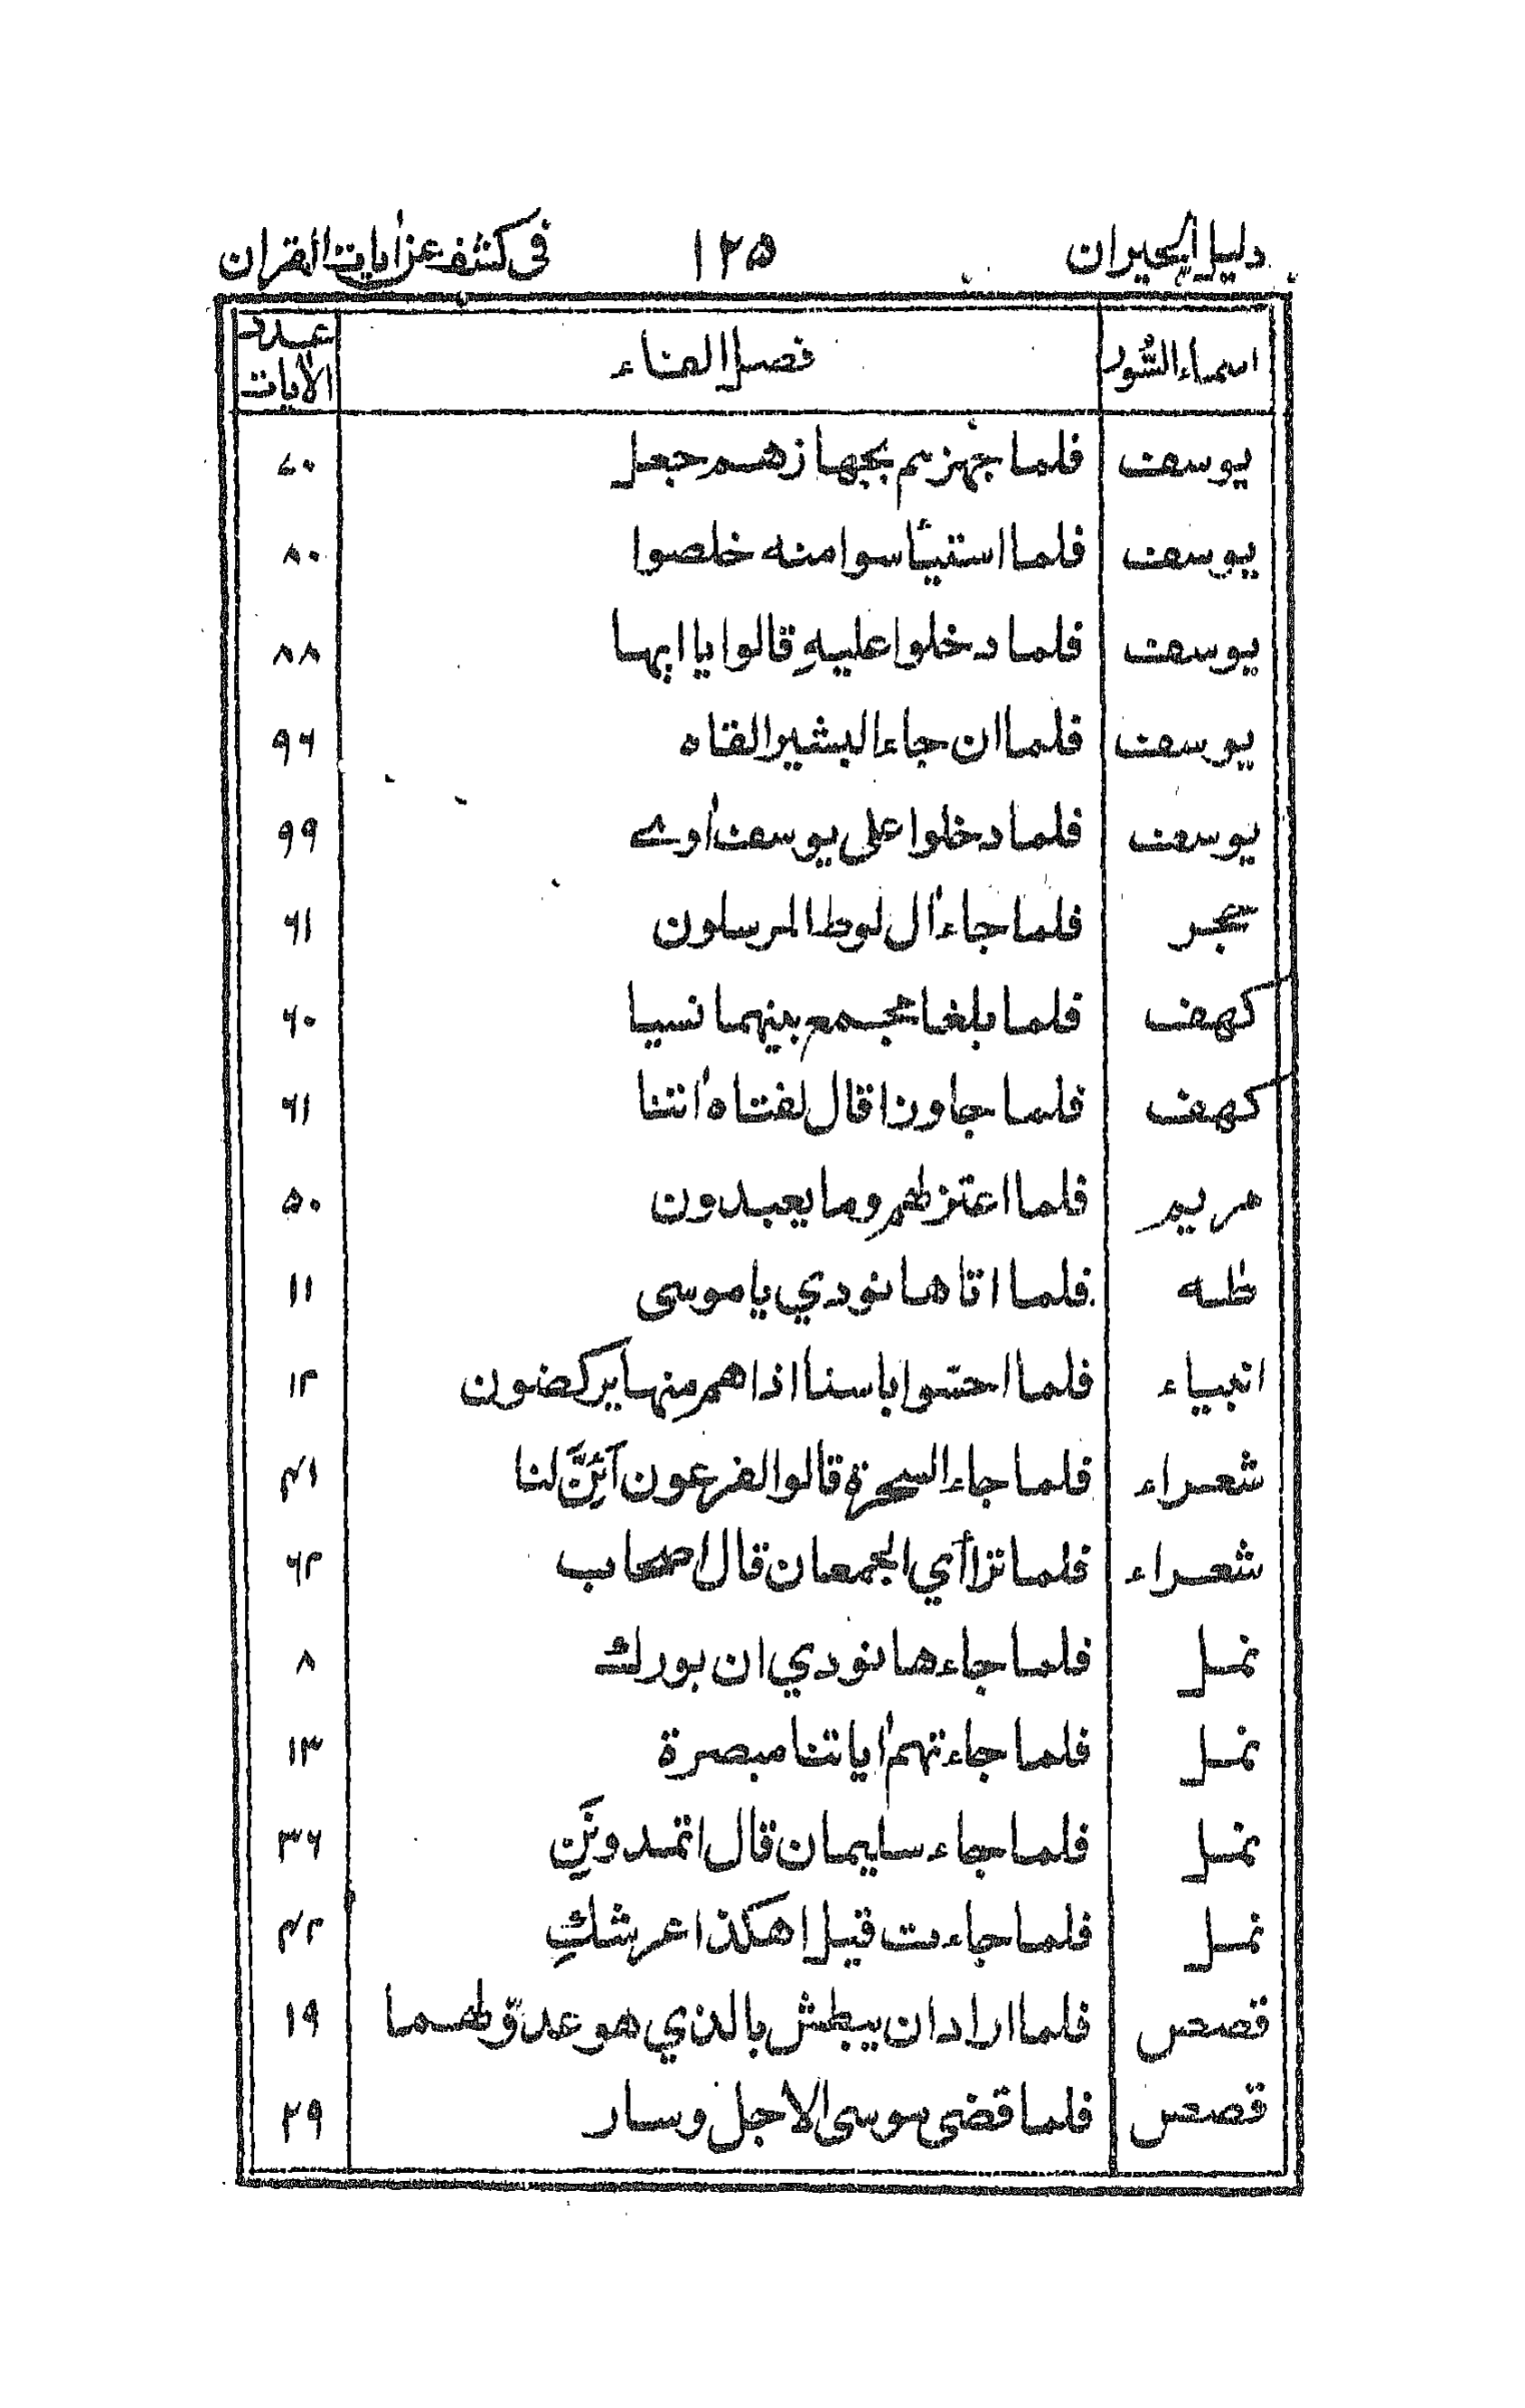 دليل الحيران ١٢٥ في كشف عن اٰيات القران
اسماء السُّور فصل الفاء عدد الاٰيات
يوسف فلما جهزهم بجهازهم جعل ٧٠
يوسف فلما استيأسوا منه خلصوا ٨٠
يوسف فلما دخلوا عليهِ قالوا يا ايها ٨٨
يوسف فلما ان جاء البشير القاه ٩٦
يوسف فلما دخلوا على يوسف اٰوى ٩٩
حجر فلما جاء اٰل لوط المرسلون ٦١
كهف فلما بلغا مجمع بينهما نسيا ٦٠
كهف فلما جاوزا قال لفتاه اٰتنا ٦١
مريم فلما اعتزلهم وما يعبدون ٥٠
طٰه فلما اتاها نودي يا موسى ١١
انبياء فلما احسّوا باسنا اذا هم منها يركضون ١٢
شعراء فلما جاء السحرة قالوا لفرعون آئِنَّ لنا ٤١
شعراء فلما ترا أي الجمعان قال اصحاب ٦٢
نمل فلما جاءها نودي ان بورك ٨
نمل فلما جاءتهم اٰياتنا مبصرة ١٣
نمل فلما جاء سليمان قال اتمدونَنِ ٣٦
نمل فلما جاءت قيل اهكذا عرشكِ ٤٢
قصص فلما اراد ان يبطش بالذي هو عدوّ لهما ١٩
قصص فلما قضى موسى الاجل وسار ٢٩